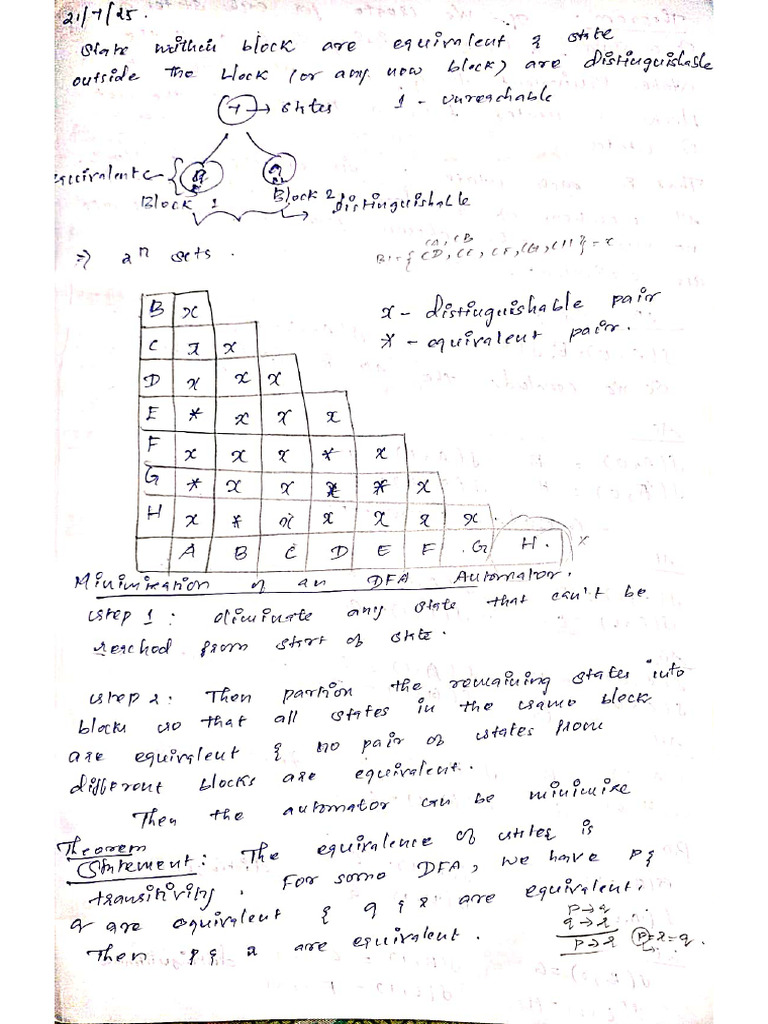 21/7/25.
State within block are equivalent & state
outside the block (or any now block) are distinguishable
7 → states 1 - unreachable
equivalent
Block 1 Block 2 distinguishable
⇒ 2n sets.
CA, CB
B1 = { CD, CE, CF, CG, CH } = x
x - distinguishable pair
* - equivalent pair.
B x
C x x
D x x x
E * x x x
F x x x * x
G * x x x * x
H x * x x x x x
A B C D E F G H. x
Minimization of an DFA Automator.
Step 1: eliminate any state that can't be
reached from start of state.
Step 2: Then partion the remaining states into
block so that all states in the same block
are equivalent & no pair of states from
different blocks are equivalent.
Then the automator can be minimize
Theorem
Statement: The equivalence of states is
transitiving. For some DFA, we have P &
q are equivalent & q & r are equivalent.
Then p & r are equivalent.
P → q
q → r
P → r
P = r = q.